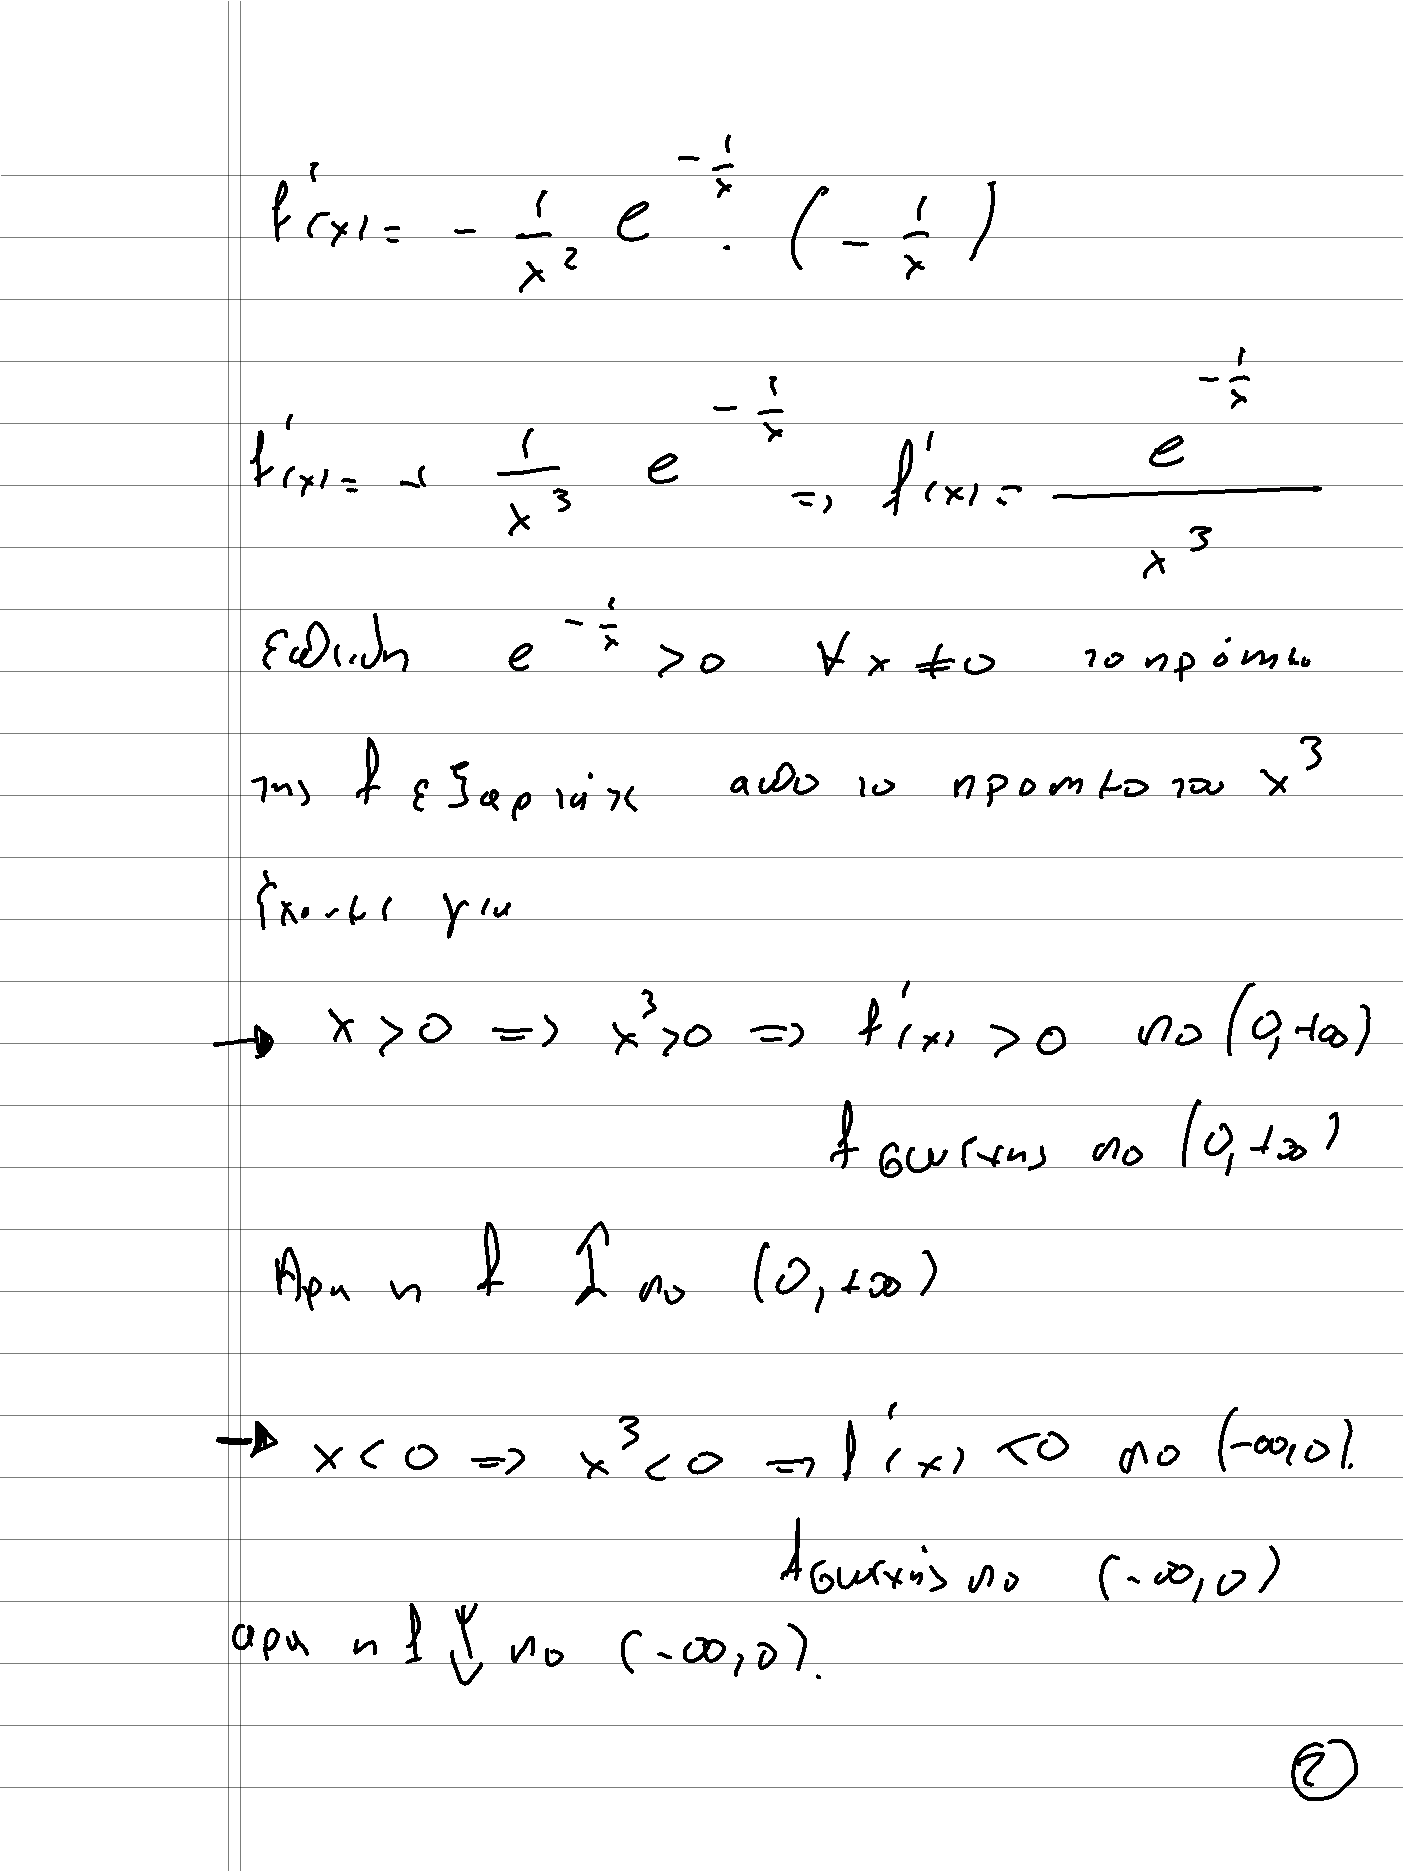 f'(x) = - 1/x² e^(-1/x) · (- 1/x)
f'(x) = + 1/x³ e^(-1/x) => f'(x) = e^(-1/x) / x³
επειδη e^(-1/x) > 0 ∀ x ≠ 0 το πρόσημο
της f εξαρτιάται απο το προσημο του x³
Έχουμε για
→ x > 0 => x³ > 0 => f'(x) > 0 στο (0, +∞)
f συνεχης στο (0, +∞)
Αρα η f ↑ στο (0, +∞)
→ x < 0 => x³ < 0 => f'(x) < 0 στο (-∞, 0).
f συνεχής στο (-∞, 0)
αρα η f ↓ στο (-∞, 0).
2